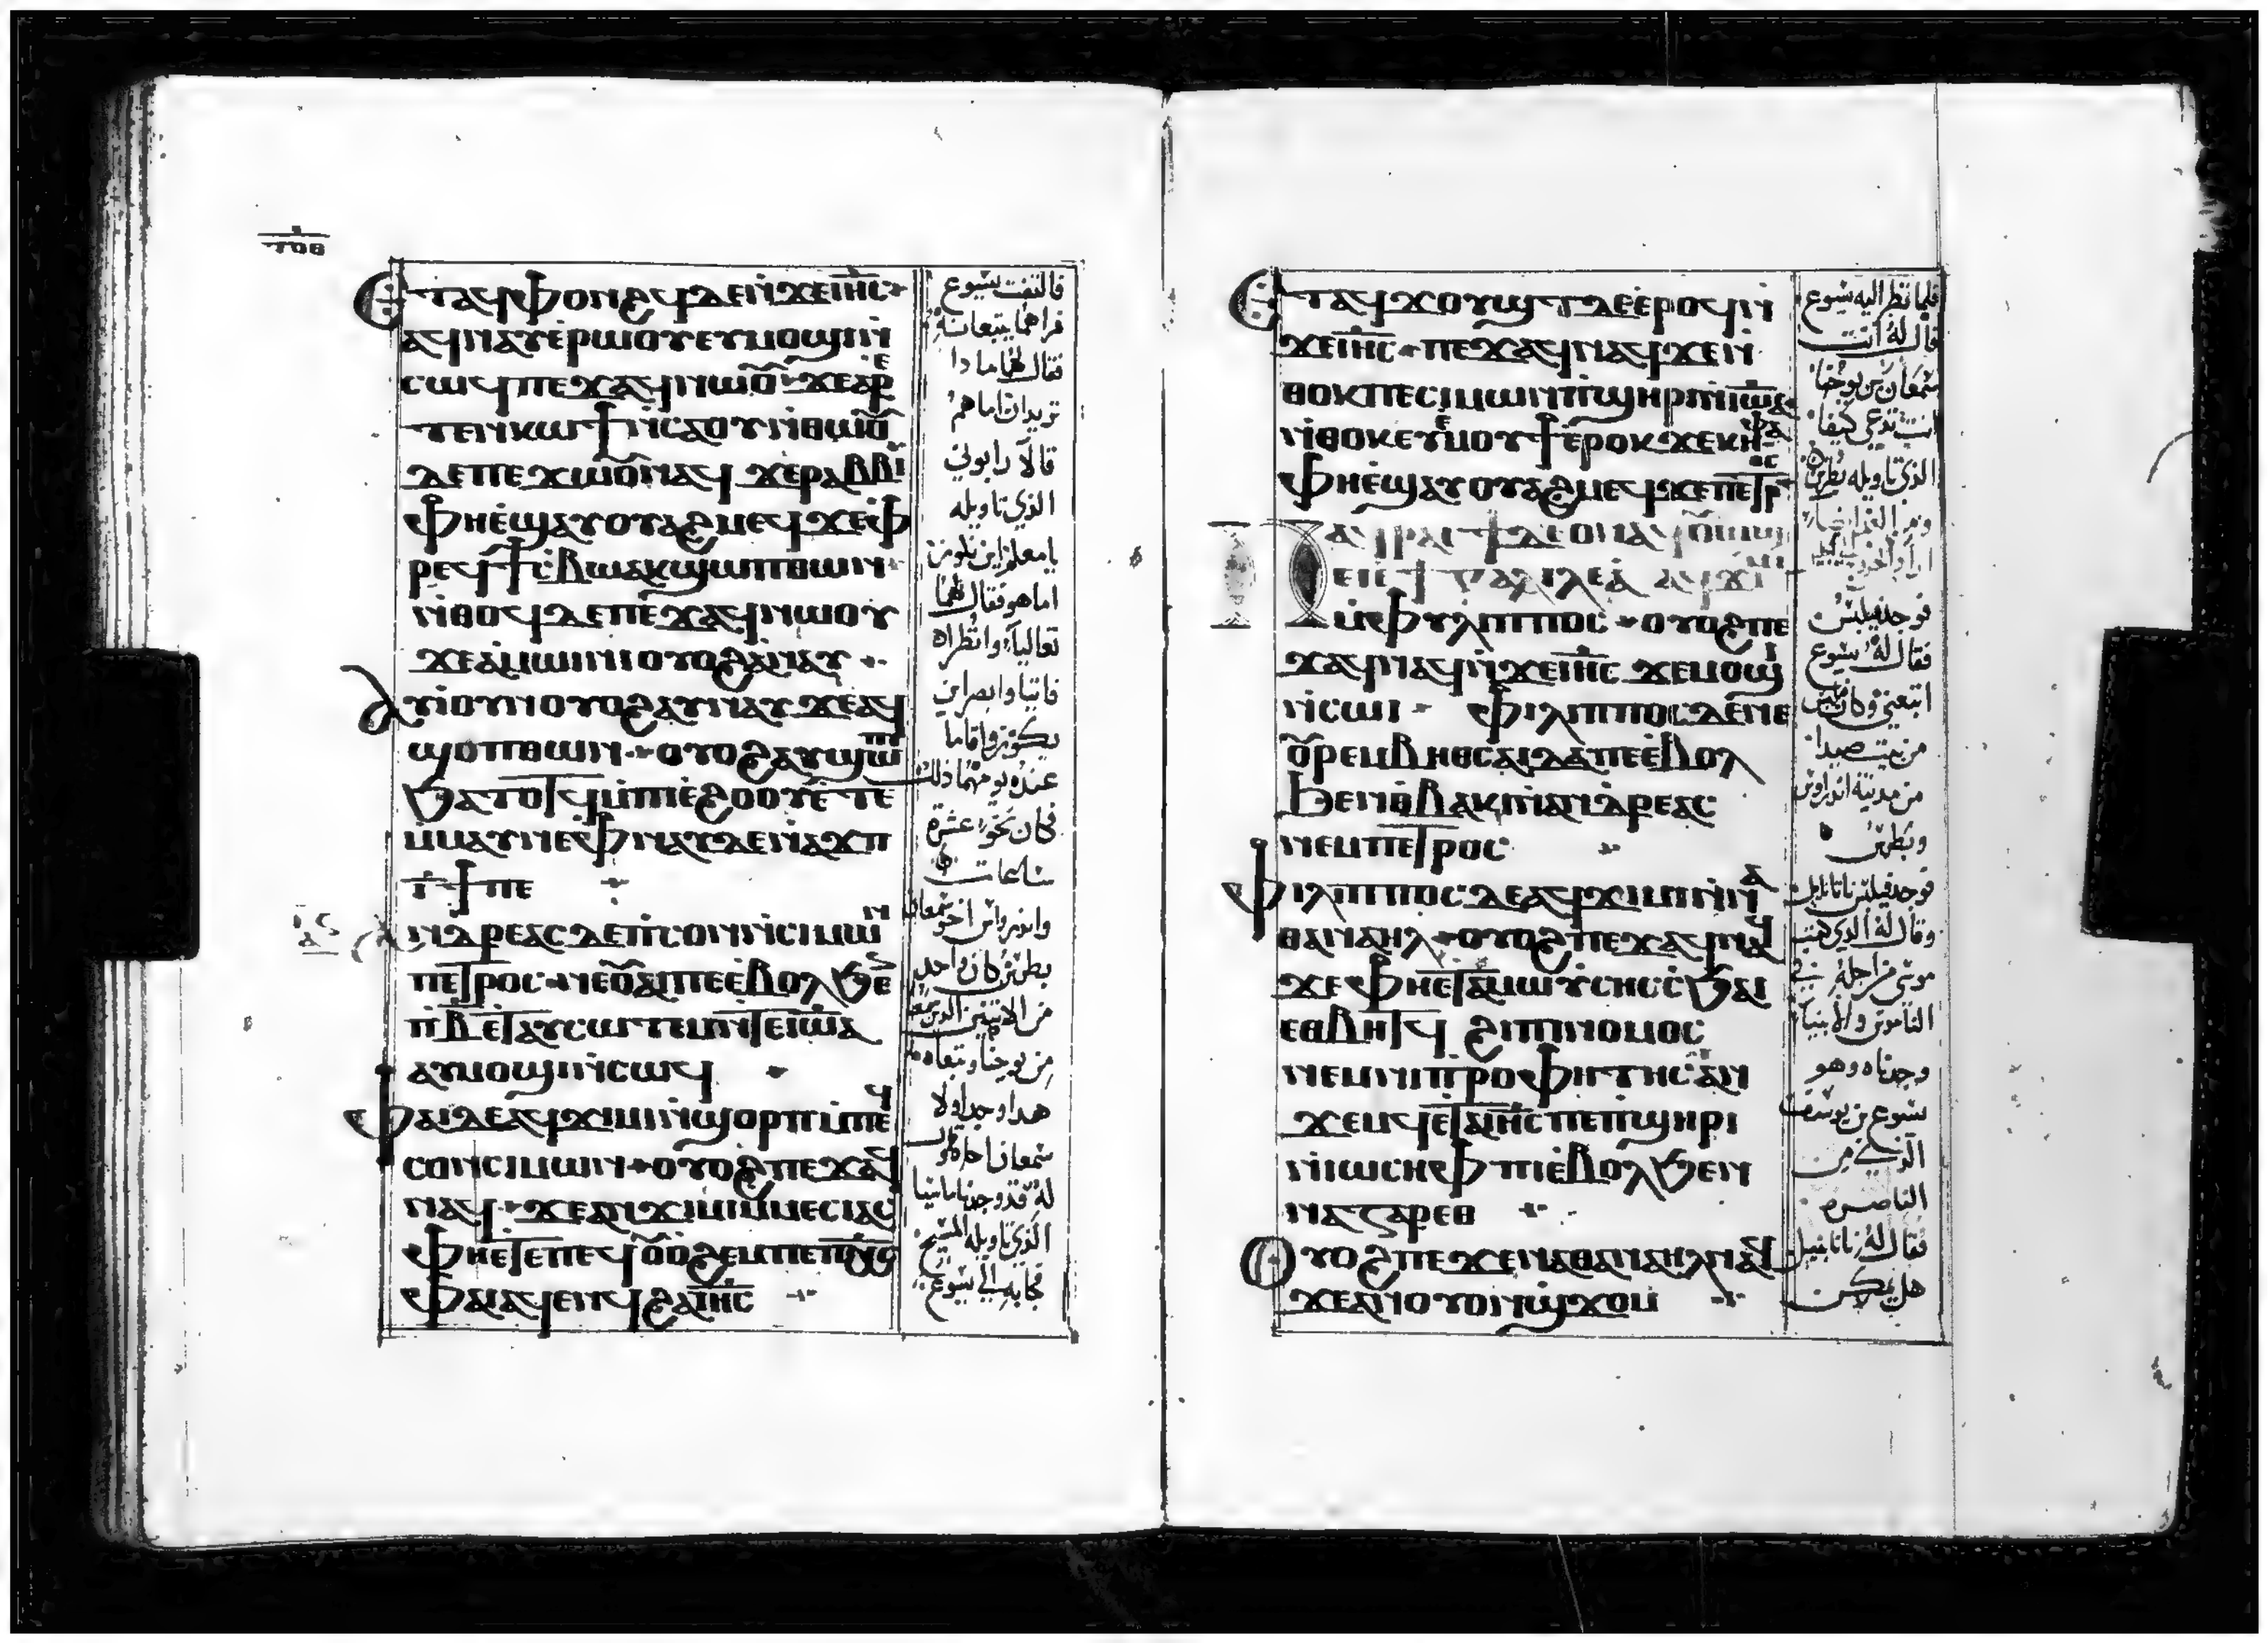 ⲉⲧⲁϥⲫⲟⲛϩϥⲇⲉⲛ̇ϫⲉⲓⲏ̅ⲥ̅
ⲁϥⲛⲁⲩⲉ̀ⲣⲱⲟⲩⲉⲩⲙⲟϣⲓⲛ̀
ⲥⲱϥⲡⲉϫⲁϥⲛⲱⲟ̅ⲩ ϫⲉⲁⲣⲉ
ⲧⲉⲛⲕⲱϯⲛ̀ⲥⲁⲟⲩⲛ̀ⲑⲱⲟ̅ⲩ
ⲇⲉⲡⲉϫⲱⲟ̅ⲩⲛⲁϥ ϫⲉⲣⲁⲃⲃⲓ
ⲫⲏⲉ̀ϣⲁⲩⲟⲩⲁϩⲙⲉϥϫⲉⲫ
ⲣⲉϥϯⲥⲃⲱⲁⲕϣⲱⲡⲑⲱⲛ
ⲛ̀ⲑⲟϥⲇⲉⲡⲉϫⲁϥⲛⲱⲟⲩ
ϫⲉⲁ̀ⲙⲱⲓⲛⲓⲟⲩⲟϩⲁⲛⲁⲩ
ⲁⲩⲓ̀ⲟⲩⲛⲟⲩⲟϩⲁⲩⲛⲁⲩϫⲉⲁϥ
ϣⲟⲡⲑⲱⲛ ⲟⲩⲟϩⲁⲩϣⲱⲡⲓ
ϧⲁⲧⲟⲧϥⲙ̀ⲡⲓⲉ̀ϩⲟⲟⲩⲉ̀ⲧⲉ
ⲙ̀ⲙⲁⲩⲛⲉⲫⲛⲁⲩⲇⲉⲛⲁϫⲡ
ⲓ̅ϯⲡⲉ
ⲁⲛⲇⲣⲉⲁⲥⲇⲉⲡ̀ⲥⲟⲛⲛ̀ⲥⲓⲙⲱⲛ
ⲡⲉⲧⲣⲟⲥ ⲛⲉⲟ̅ⲩⲁⲓⲡⲉⲉ̀ⲃⲟⲗϧⲉⲛ
ⲡⲓⲃ̅ⲉⲧⲁⲩⲥⲱⲧⲉⲙⲛ̀ⲧⲉⲓⲱ̅ⲁ
ⲁⲩⲙⲟϣⲓⲛ̀ⲥⲱϥ
ⲫⲁⲓⲇⲉⲁϥϫⲓⲙⲓⲛ̀ϣⲟⲣⲡⲙ̀ⲡⲉϥ
ⲥⲟⲛⲥⲓⲙⲱⲛ ⲟⲩⲟϩⲡⲉϫⲁϥ
ⲛⲁϥ ϫⲉⲁⲛϫⲓⲙⲓⲙ̀ⲙⲉⲥⲓⲁⲥ
ⲫⲏⲉⲧⲉⲡⲉϥⲟ̅ⲩⲟϩⲉⲙⲡⲉⲡⲭ̅ⲥ̅
ⲫⲁⲓⲁϥⲉⲛϥϩⲁⲓⲏ̅ⲥ̅
فالتفت يسوع
فراهما يتبعانه
فقال لهما ماذا
تريدان اما هم
قالا رابوني
الذي تاويله
يا معلم اين تكون
اما هو فقال لهما
تعاليا وانظراه
فاتيا وابصرا اين
يكون واقاما
عنده يومهما ذلك
فكان نحو عشرة
ساعات
واندراوس اخو سمعان
بطرس كان واحد
من الاثنين الذين سمعا
من يوحنا وتبعاه
هذا وجد اولا
سمعان اخاه قال
له قد وجدنا ماسيا
الذي تاويله المسيح
فجا به الي يسوع
ⲉⲧⲁϥϫⲟⲩϣⲧⲇⲉⲉ̀ⲣⲟϥⲛ̀
ϫⲉⲓⲏ̅ⲥ̅ ⲡⲉϫⲁϥⲛⲁϥϫⲉⲛ̀
ⲑⲟⲕⲡⲉⲥⲓⲙⲱⲛⲡ̀ϣⲏⲣⲓⲛ̀ⲓⲱ̅ⲁ
ⲛ̀ⲑⲟⲕⲉⲩⲉ̀ⲙⲟⲩϯⲉ̀ⲣⲟⲕϫⲉⲕⲏⲫⲁ
ⲫⲏⲉ̀ϣⲁⲩⲟⲩⲁϩⲙⲉϥϫⲉⲡⲉⲧⲣⲟⲥ
ⲡⲉϥⲣⲁⲥϯⲇⲉⲟⲛⲁϥⲟ̅ⲩⲱϣ
ⲉⲓ̀ⲉϯⲅⲁⲗⲓⲗⲉⲁ ⲁϥϫⲓⲙⲓ
ⲙ̀ⲫⲩⲗⲓⲡⲡⲟⲥ ⲟⲩⲟϩⲡⲉ
ϫⲁϥⲛⲁϥⲛ̀ϫⲉⲓⲏ̅ⲥ̅ ϫⲉⲙⲟϣⲓ
ⲛ̀ⲥⲱⲓ ⲫⲓⲗⲓⲡⲡⲟⲥⲇⲉⲛⲉ
ⲟ̅ⲩⲣⲉⲙⲃⲏⲑⲥⲁⲓⲇⲁⲡⲉⲉ̀ⲃⲟⲗ
ϧⲉⲛⲑ̀ⲃⲁⲕⲓⲛ̀ⲁⲛⲇⲣⲉⲁⲥ
ⲛⲉⲙⲡⲉⲧⲣⲟⲥ
ⲫⲓⲗⲓⲡⲡⲟⲥⲇⲉⲁϥϫⲓⲙⲓⲛ̀ⲛⲁ
ⲑⲁⲛⲁⲏⲗ ⲟⲩⲟϩⲡⲉϫⲁϥⲛⲁϥ
ϫⲉⲫⲏⲉⲧⲁⲙⲱⲩⲥⲏⲥⲥ̀ϧⲁⲓ
ⲉⲑⲃⲏⲧϥ ϩⲓⲡⲓⲛⲟⲙⲟⲥ
ⲛⲉⲙⲛⲓⲡ̀ⲣⲟⲫⲏⲧⲏⲥ ⲁⲛ
ϫⲉⲙϥⲉⲧⲉⲓⲏ̅ⲥ̅ⲡⲉⲡ̀ϣⲏⲣⲓ
ⲛ̀ⲓⲱⲥⲏⲫⲡⲓⲉ̀ⲃⲟⲗϧⲉⲛ
ⲛⲁⲍⲁⲣⲉⲑ
ⲟⲩⲟϩⲡⲉϫⲉⲛⲁⲑⲁⲛⲁⲏⲗⲛⲁϥ
ϫⲉⲁⲛⲟⲩⲟⲛϣϫⲟⲙ
فلما نظر اليه يسوع
قال له انت
سمعان بن يوحنا
انت تدعي كيفا
الذي تاويله بطرس
ومن الغد ايضا
فوجد فيلبس
فقال له يسوع
اتبعني وكان فيلبس
من بيت صيدا
من مدينة اندراوس
وبطرس
فوجد فيلبس ناثانايل
وقال له الذي كتب
موسي من اجله في
الناموس والانبيا
وجدناه وهو
يسوع بن يوسف
الذي من
الناصره
فقال له ناثانييل
هل يمكن